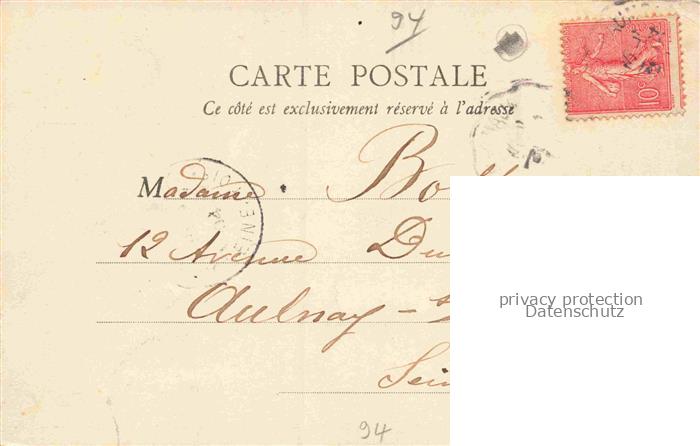 94
CARTE POSTALE
Ce côté est exclusivement réservé à l'adresse
10c
Madame
12 Avenue
Aulnay - s
privacy protection
Datenschutz
94